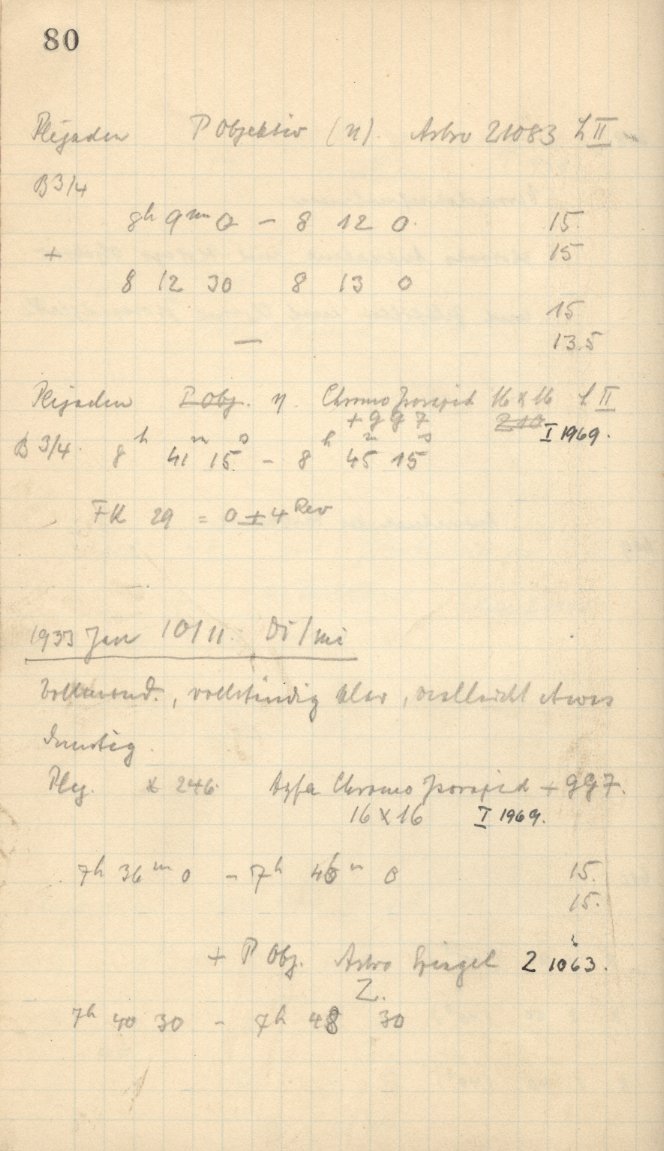 80
Plejaden P Objektiv (n). Astro Z1083 L II
B 3/4
8h 9m 0 – 8 12 0. 15.
+ 15
8 12 30 8 13 0
15
— 13.5
Plejaden P Obj. n. Chromo Isorapid 16 x 16 L II
+ gg 7 I 1969.
B 3/4. 8h 41m 15s – 8h 45m 15s
FK 29 = 0 ± 4 Rev
1933 Jan 10/11. Di/Mi
Vollmond., vollständig klar, vielleicht etwas
dunstig.
Plej. x 246. Agfa Chromo Isorapid + gg 7.
16 x 16 I 1969.
7h 36m 0 – 7h 46m 0 15.
15.
+ P Obj. Astro Spiegel Z 1063.
Z.
7h 40 30 – 7h 48 30